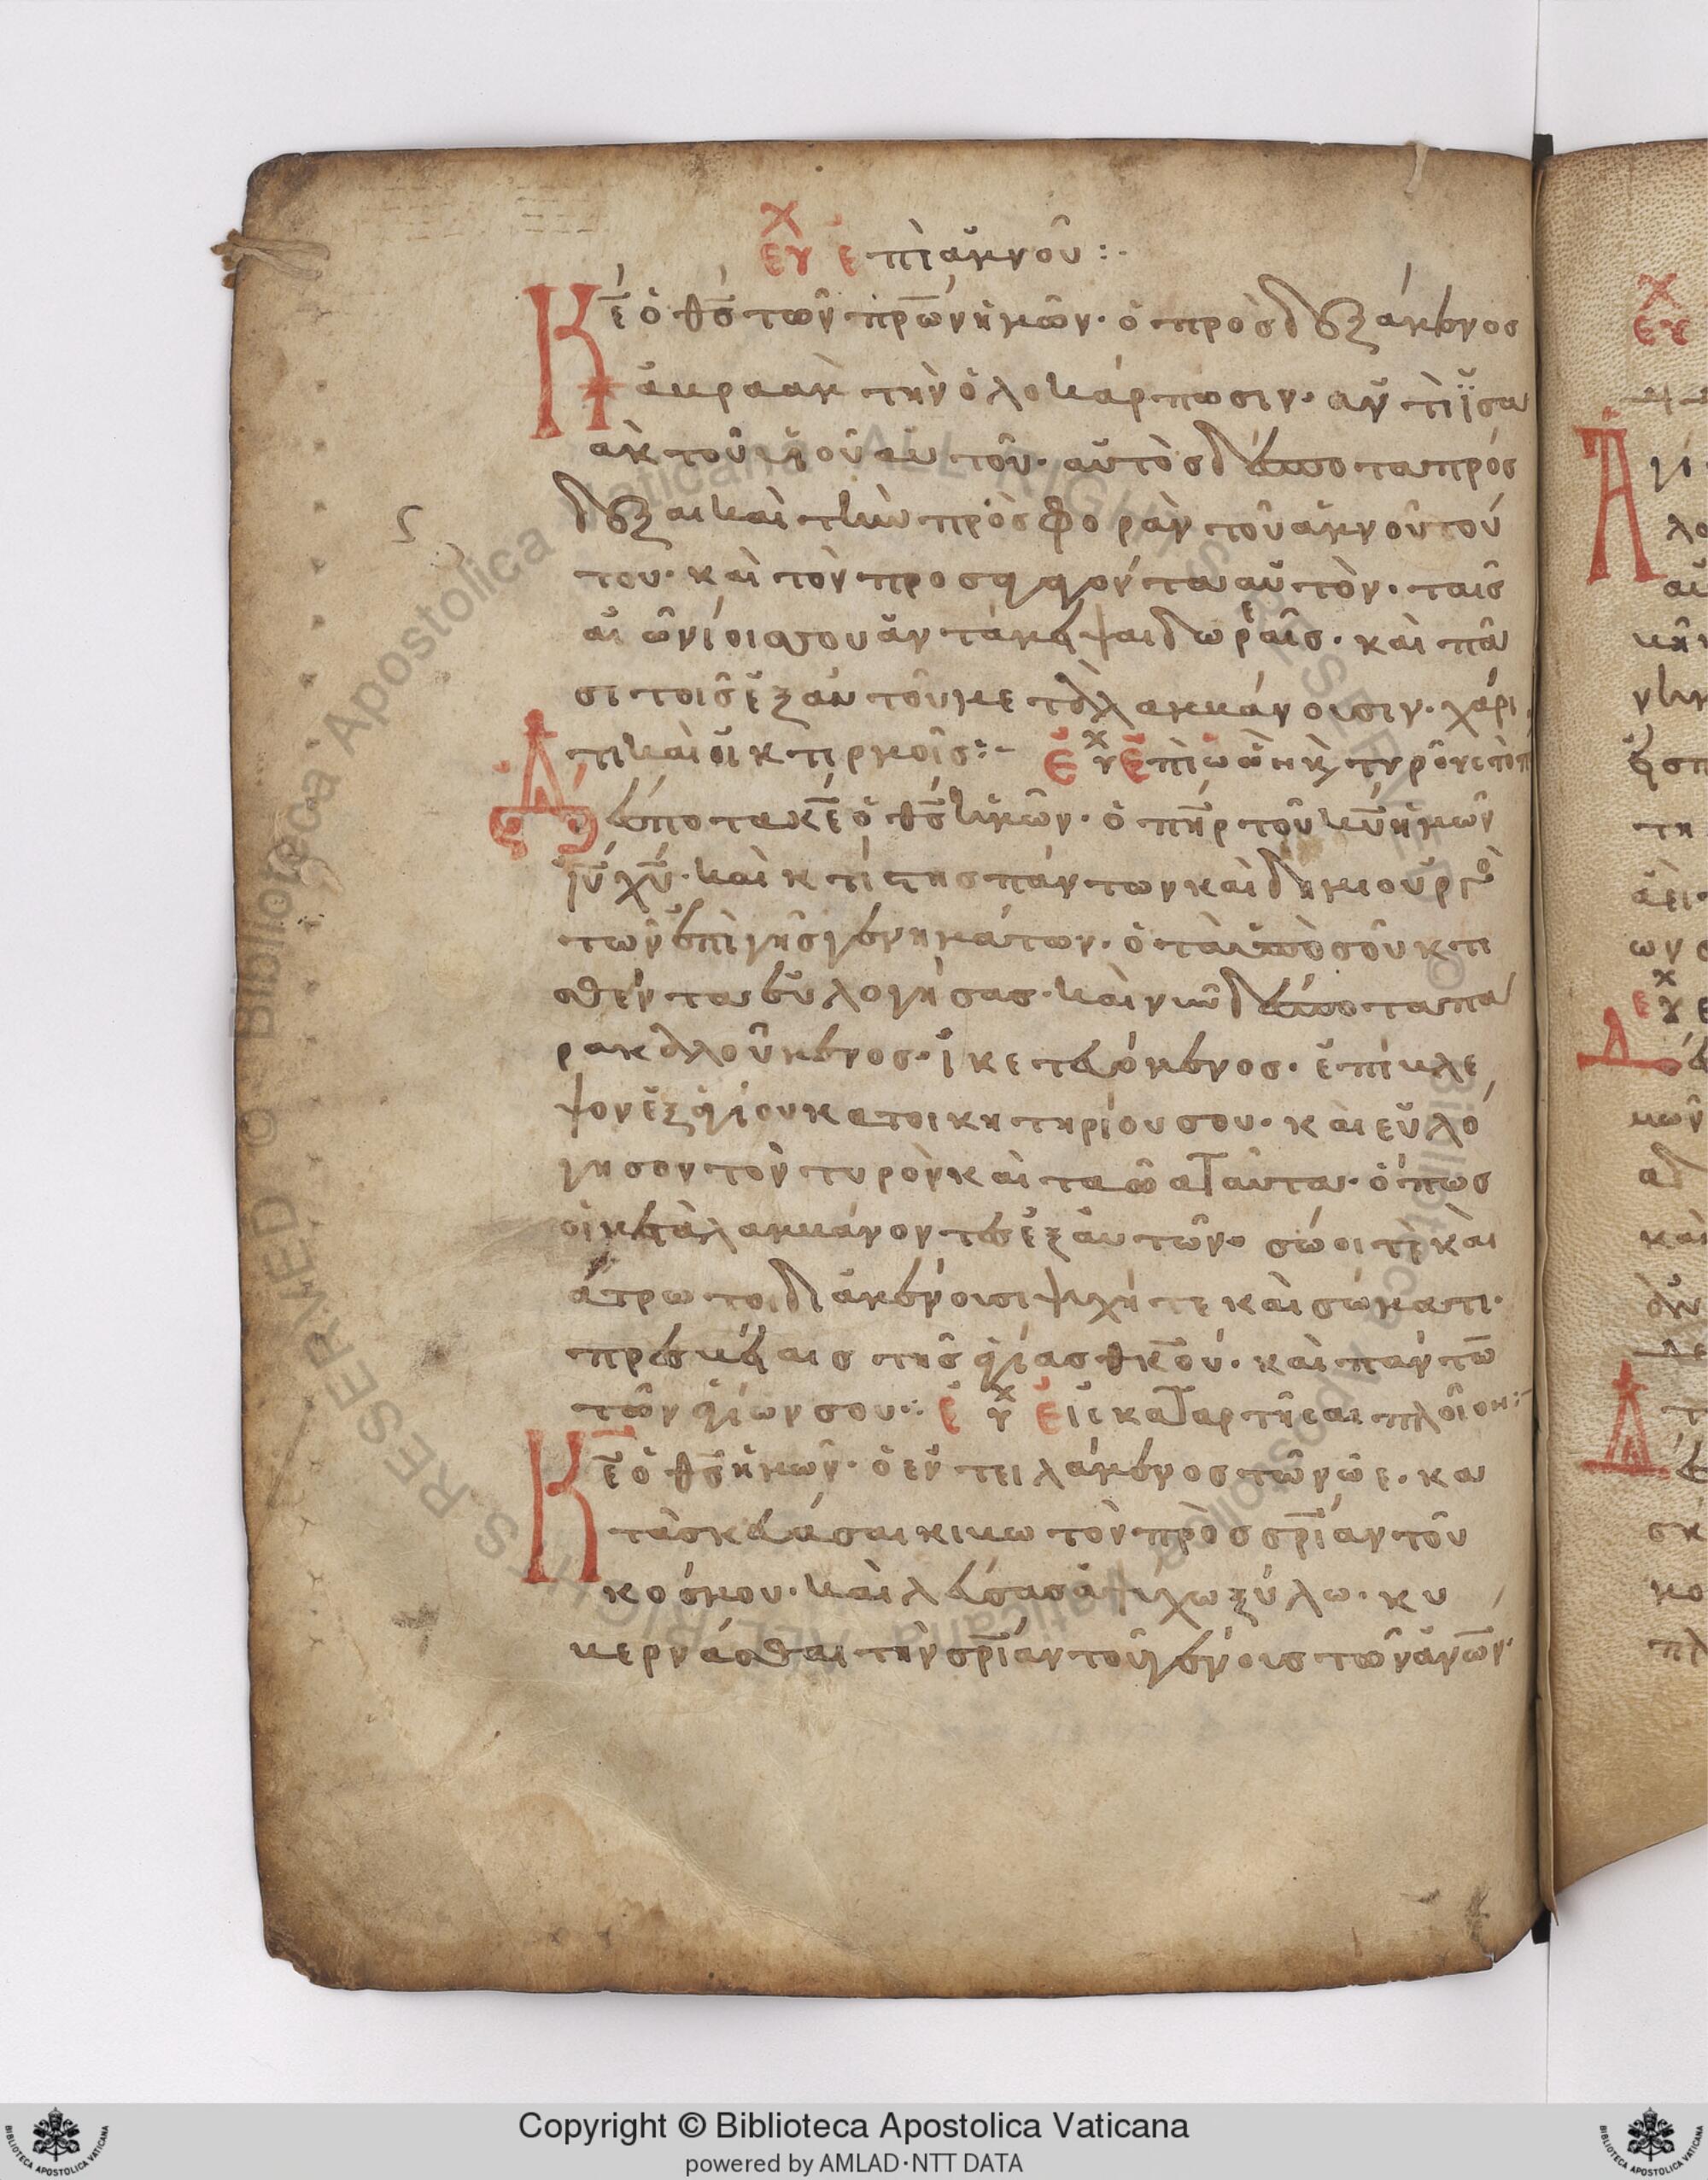 εὐχ ἐπὶ ἀμνοῦ:·
Κε̄ ὁ θς̄ τῶν πρ̄ων ἡμῶν· ὁ προσδεξάμενος
ἀβραὰμ τὴν ὁλοκάρπωσιν· ἀντὶ ἰσα
ὰκ τοῦ υἱοῦ αὐτοῦ· αὐτὸς δέσποτα πρόσ
δεξαι καὶ τὴν προσφορὰν τοῦ ἀμνοῦ τού
του· καὶ τὸν προσφέροντα αὐτὸν· ταῖς
αἰωνίοις σου ἀντάμειψαι δωρεαῖς· καὶ πᾶ
σι τοῖς ἐξ αὐτοῦ μεταλαμβάνουσιν· χάρι
τι καὶ οἰκτιρμοῖς:– εὐχ ἐπὶ ὠῶν κ τυροῦ
Δέσποτα κε̄ ὁ θς̄ ἡμῶν· ὁ πη̄ρ τοῦ κῡ ἡμῶν
ἰῡ χῡ· καὶ κτίστης πάντων καὶ δημιουργὸ
τῶν ἐπὶ γῆς γενημάτων· ὁ τὰ ὑπὸ σοῦ κτι
σθέντα εὐλογήσας· καὶ νῦν δέσποτα πα
ρακαλλούμενος· ἱκετευόμενος· ἐπίβλε
ψον ἐξ ἁγίου κατοικητηρίου σου· καὶ εὐλό
γησον τὸν τυρὸν καὶ τὰ ὠὰ ταῦτα· ὅπως
οἱ μεταλαμβάνοντες ἐξ αὐτῶν· σώοι τὲ καὶ
ἄτρωτοι διαμένουσι ψυχῆ τε καὶ σώματι·
πρεσβείαις τῆς ἁγίας θκ̄ου· καὶ πάντω̄
τῶν ἁγίων σου:· εὐχ εἰς καταρτῆσαι πλοῖον:–
Κε̄ ὁ θς̄ ἡμῶν· ὁ ἐντειλάμενος τῶ νῶε· κα
τασκευάσαι κιβωτὸν πρὸς σρ̄ίαν τοῦ
κόσμου· καὶ κελεύσας ἀψύχω ξύλω· κυ
βερνάσθαι τὴν σρ̄ίαν τοῦ γένους τῶν ἀνω̄ν·
Copyright © Biblioteca Apostolica Vaticana
powered by AMLAD·NTT DATA